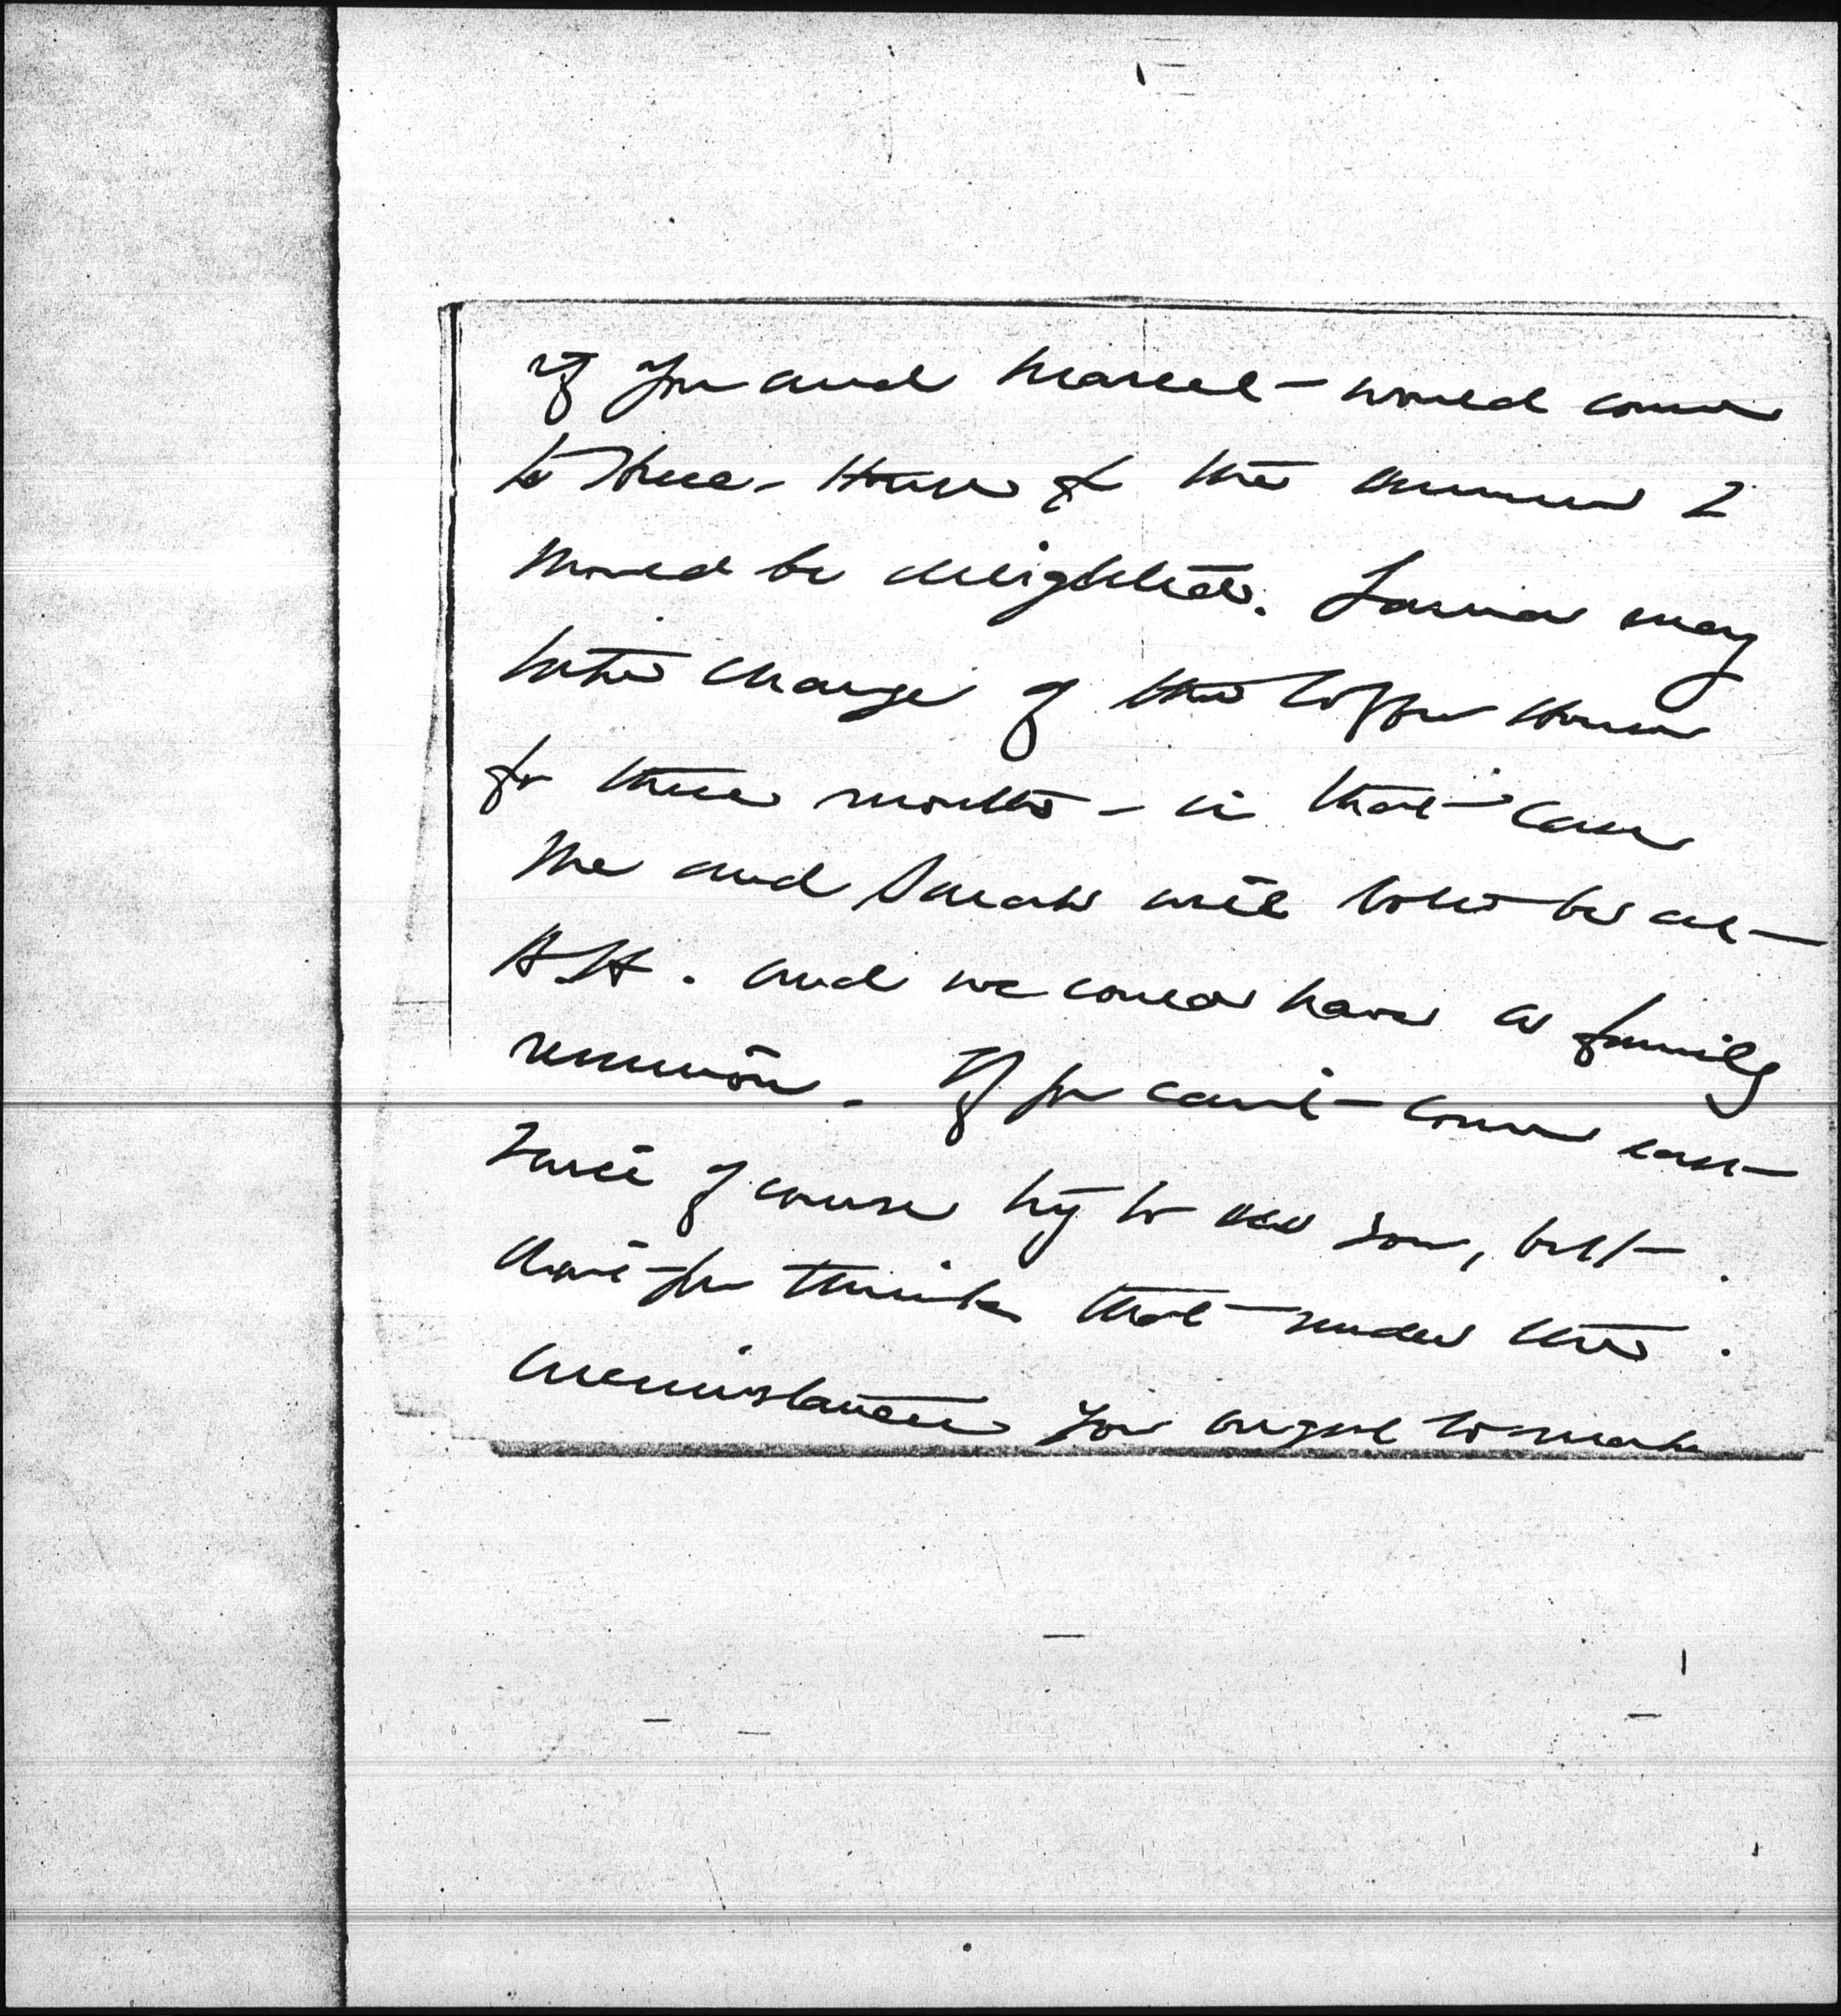 if you and Marcel would come
to Hull-House for the summer I
should be delighted. Laura may
take charge of the Coffee House
for three months - in that case
she and Sarah will both be at
H-H. and we could have a family
reunion. If you can't come east
I will of course try to see you, but
don't you think that under the
circumstances you ought to make